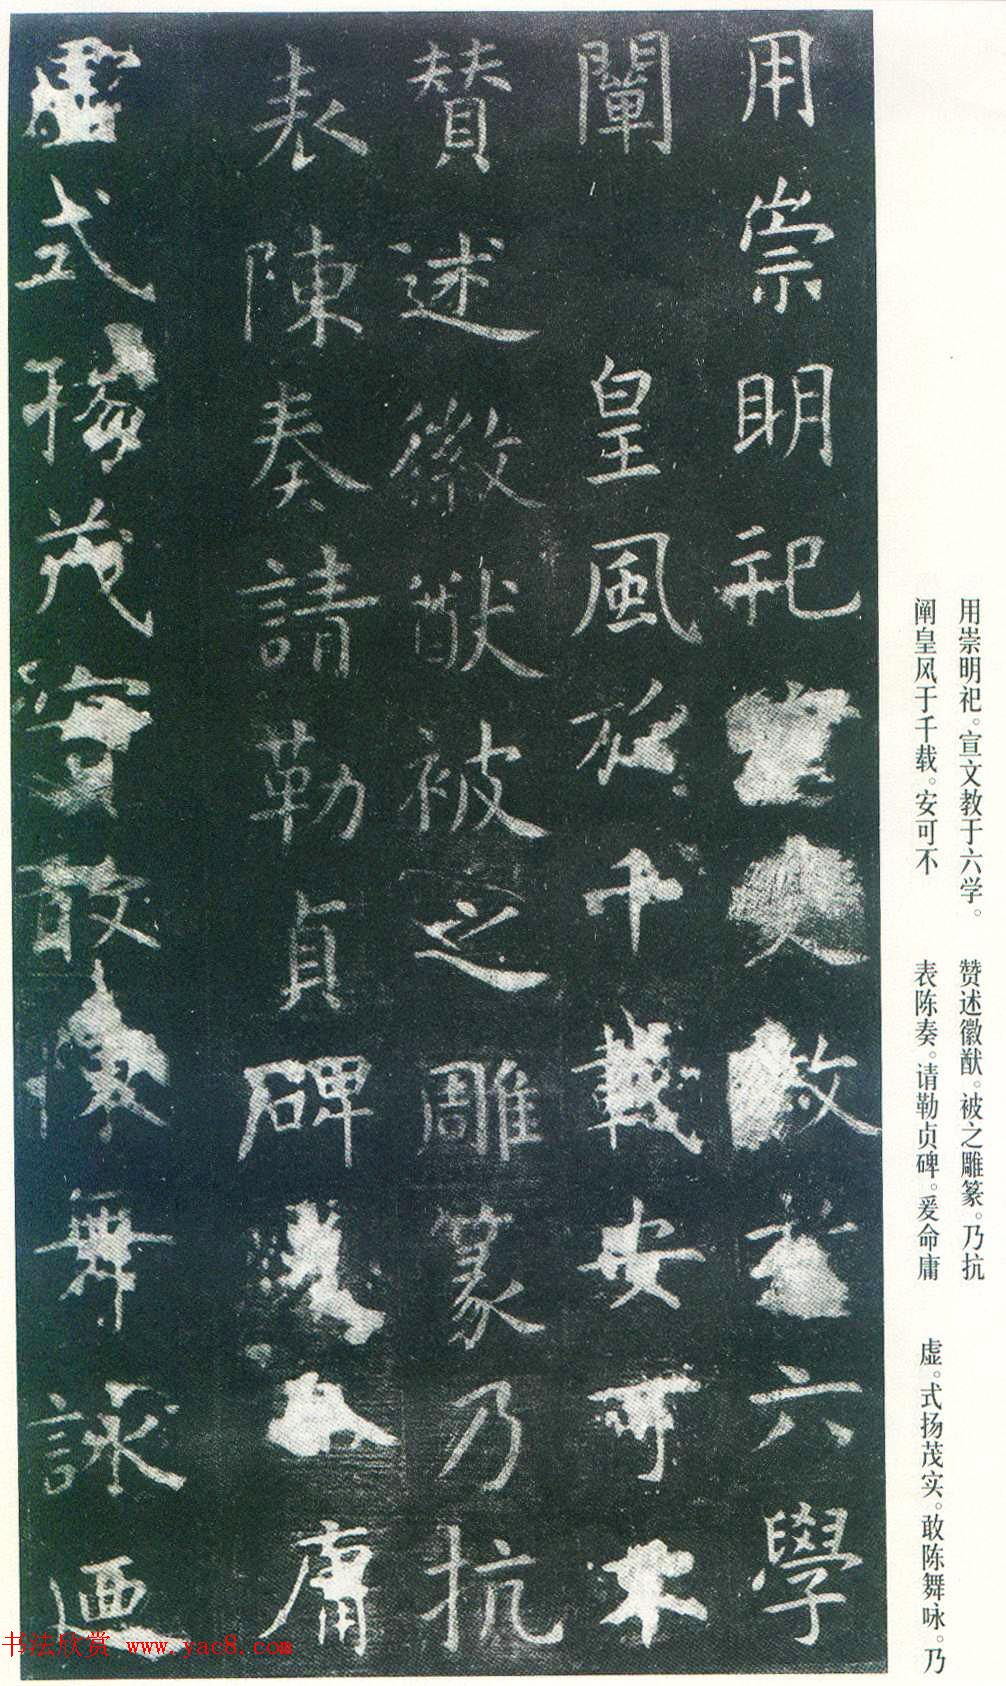 用崇明祀宣文教於六學
闡皇風於千載安可不
贊述徽猷被之雕篆乃抗
表陳奏請勒貞碑爰命庸
虛式揚茂實敢陳舞詠迺
用崇明祀。宣文教于六学。
阐皇风于千载。安可不
赞述徽猷。被之雕篆。乃抗
表陈奏。请勒贞碑。爰命庸
虚。式扬茂实。敢陈舞咏。乃
书法欣赏 www.yac8.com